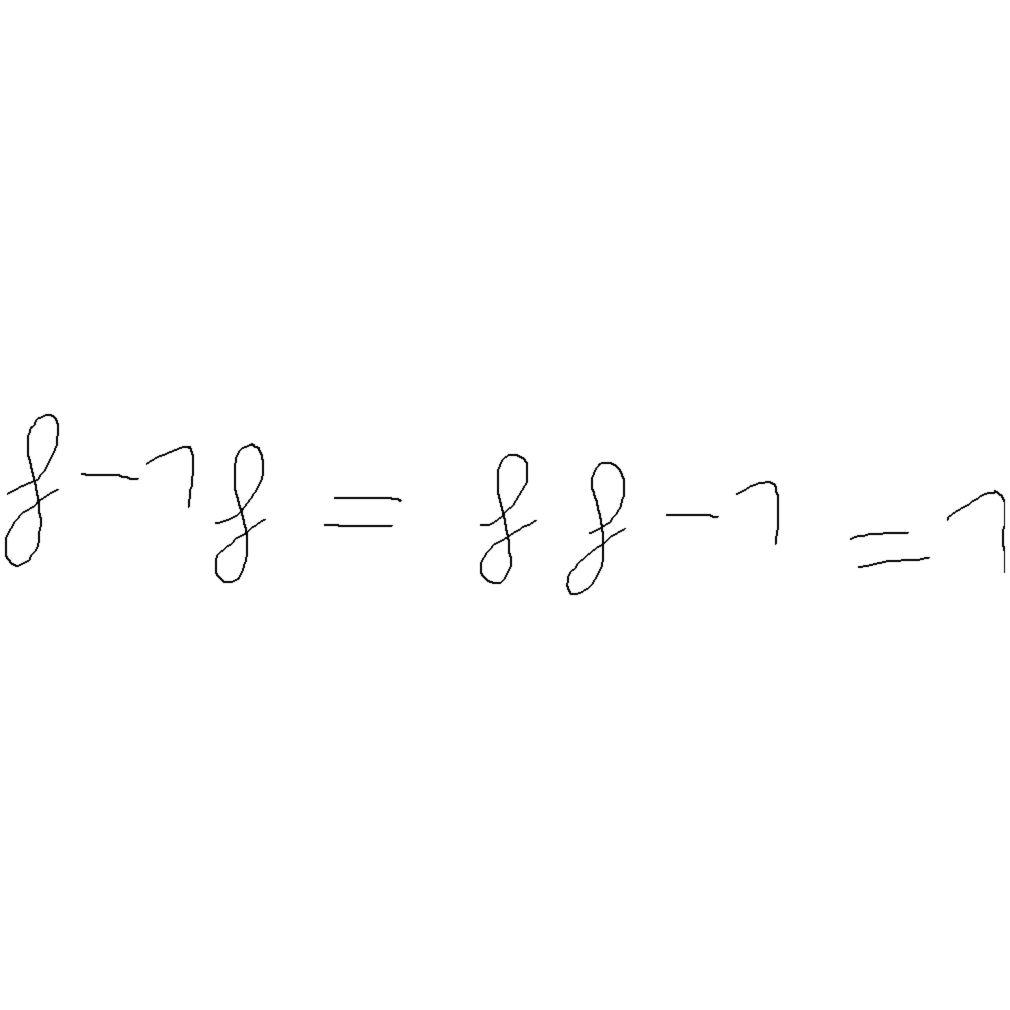 f^{-1} f = f f^{-1} = 1